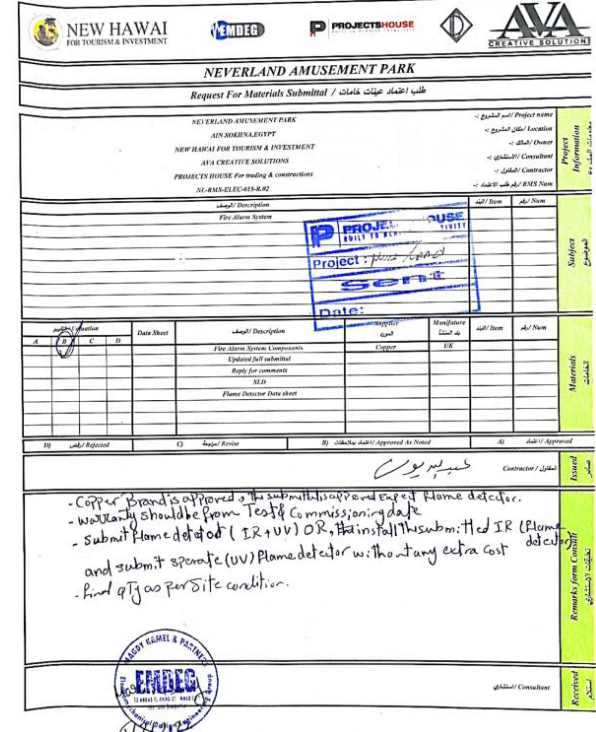 NEW HAWAI
FOR TOURISM & INVESTMENT
EMDEG
PROJECTSHOUSE
AVA
CREATIVE SOLUTION
NEVERLAND AMUSEMENT PARK
Request For Materials Submittal / طلب اعتماد عينات خامات
NEVERLAND AMUSEMENT PARK
اسم المشروع / Project name
AIN SOKHNA,EGYPT
مكان المشروع / Location
NEW HAWAII FOR TOURISM & INVESTMENT
المالك / Owner
AVA CREATIVE SOLUTIONS
الاستشاري / Consultant
PROJECTS HOUSE For trading & constructions
المقاول / Contractor
NL-RMS-ELEC-015-R.02
رقم طلب الاعتماد / RMS Num
Project Information
الوصف / Description
البند / Item
رقم / Num
Fire Alarm System
PROJE USE
BUILT TO
Project :
Sent
Date:
Subject
الموضوع
A B C D
Data Sheet
الوصف / Description
Supplier
المورد
Manifature
بلد المنشأ
البند / Item
رقم / Num
Fire Alarm System Components
Copper
UK
Updated full submittal
Reply for comments
SLD
Flame Detector Data sheet
Materials
الخامات
D) رفض / Rejected
C) مراجعة / Revise
B) اعتماد بملاحظات / Approved As Noted
A) اعتماد / Approved
المقاول / Contractor
Issued
- Copper Brand is approved, the submittal is approved Expeit Flame detector.
- warranty should be from Test & Commissioning date
- Submit flame detetod ( IR+UV) OR, the install the submitted IR (Flame detector)
and submit sperate (UV) Flame detetor without any extra cost
- Final qTy as per Site condition.
Remarks form Consult
استشاري / Consultant
Received
MAGDY KAMEL & PARTNERS
EMDEG